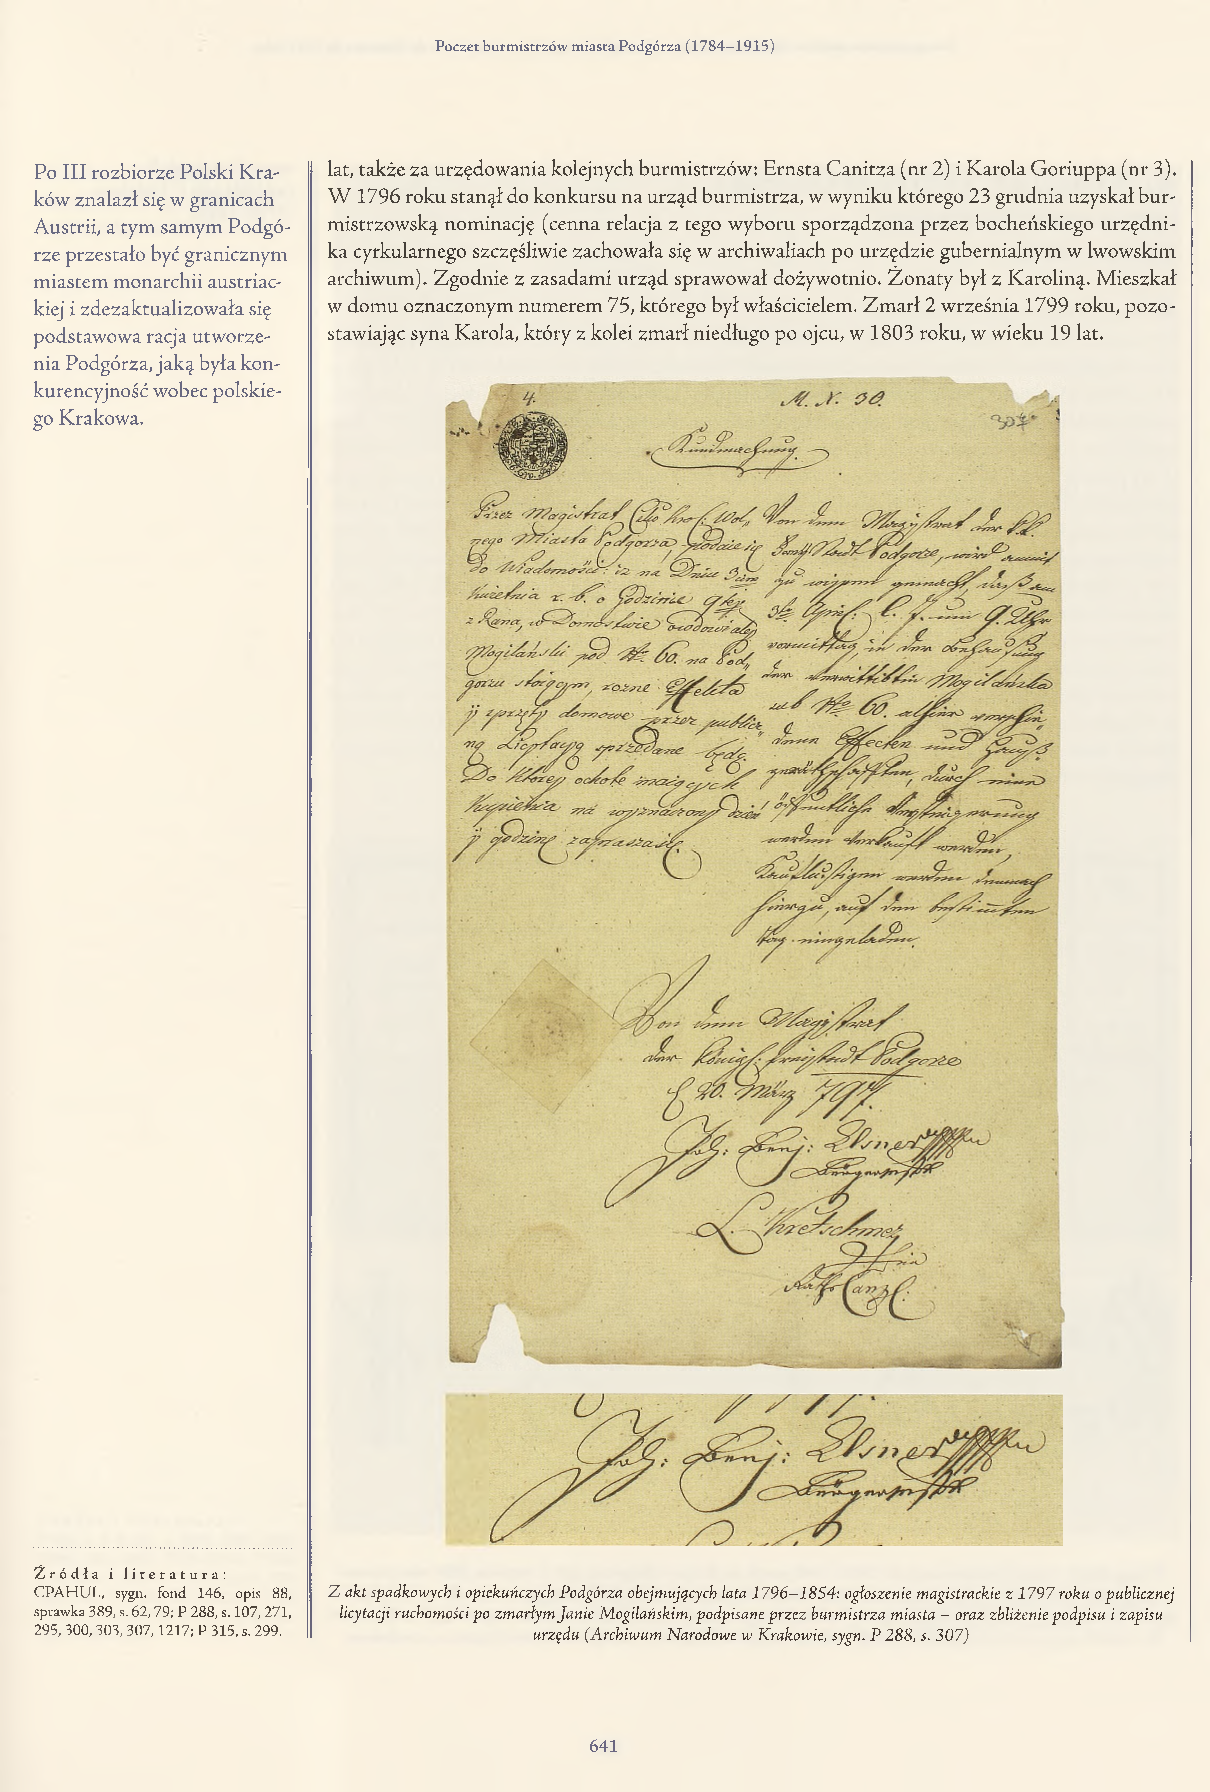 Poczet burmistrzów miasta Podgórza (1784–1915)
Po III rozbiorze Polski Kra-
ków znalazł się w granicach
Austrii, a tym samym Podgó-
rze przestało być granicznym
miastem monarchii austriac-
kiej i zdezaktualizowała się
podstawowa racja utworze-
nia Podgórza, jaką była kon-
kurencyjność wobec polskie-
go Krakowa.
lat, także za urzędowania kolejnych burmistrzów: Ernsta Canitza (nr 2) i Karola Goriuppa (nr 3).
W 1796 roku stanął do konkursu na urząd burmistrza, w wyniku którego 23 grudnia uzyskał bur-
mistrzowską nominację (cenna relacja z tego wyboru sporządzona przez bocheńskiego urzędni-
ka cyrkularnego szczęśliwie zachowała się w archiwaliach po urzędzie gubernialnym w lwowskim
archiwum). Zgodnie z zasadami urząd sprawował dożywotnio. Żonaty był z Karoliną. Mieszkał
w domu oznaczonym numerem 75, którego był właścicielem. Zmarł 2 września 1799 roku, pozo-
stawiając syna Karola, który z kolei zmarł niedługo po ojcu, w 1803 roku, w wieku 19 lat.
4.
M. N. 30.
307
Kundmachung
Przez Magistrat Cesko Krol: Wol„
nego Miasta Podgorza, podaie się
do Wiadomości: iż na Dniu 3cim
Kwietnia r. b. o Godzinie 9tey
z Rana, w Domostwie owdowiałey
Mogilański pod Nro 60. na Pod„
gorzu stoiącym, rozne Effekta
ÿ sprzęty domowe przez publicz„
ną Licytacyą sprzedane będą.
Do ktorey ochotę maiących
Kupienia na wyznaczony dzień
ÿ godzinę zaprasza się.
Von dem Magistrat der k.k.
Freyen Stadt Podgorze, wird anmit
zu wissen gemacht, daß am
3ten April: l. J. um 9. Uhr
vormittag, in der Behausung
der verwittibtin Mogilańska
sub Nro 60. alhier verschie„
dene Effecten und Hauß„
geräthschafften, durch eine
öffentliche Versteigerung
werden verkauft werden,
Kauflustigen werden demnach
hiezu, auf den bestimmten
Tag eingeladen.
Von dem Magistrat
der Königl: freystadt Podgorze
d 20. März 797.
Joh: Benj: Elsner
Bürgermstr
L. Kretschmer
Raths Canzl:
Joh: Benj: Elsner
Bürgermstr
Źródła i literatura:
CPAHUL, sygn. fond 146, opis 88,
sprawka 389, s. 62, 79; P 288, s. 107, 271,
295, 300, 303, 307, 1217; P 315, s. 299.
Z akt spadkowych i opiekuńczych Podgórza obejmujących lata 1796–1854: ogłoszenie magistrackie z 1797 roku o publicznej
licytacji ruchomości po zmarłym Janie Mogilańskim, podpisane przez burmistrza miasta – oraz zbliżenie podpisu i zapisu
urzędu (Archiwum Narodowe w Krakowie, sygn. P 288, s. 307)
641